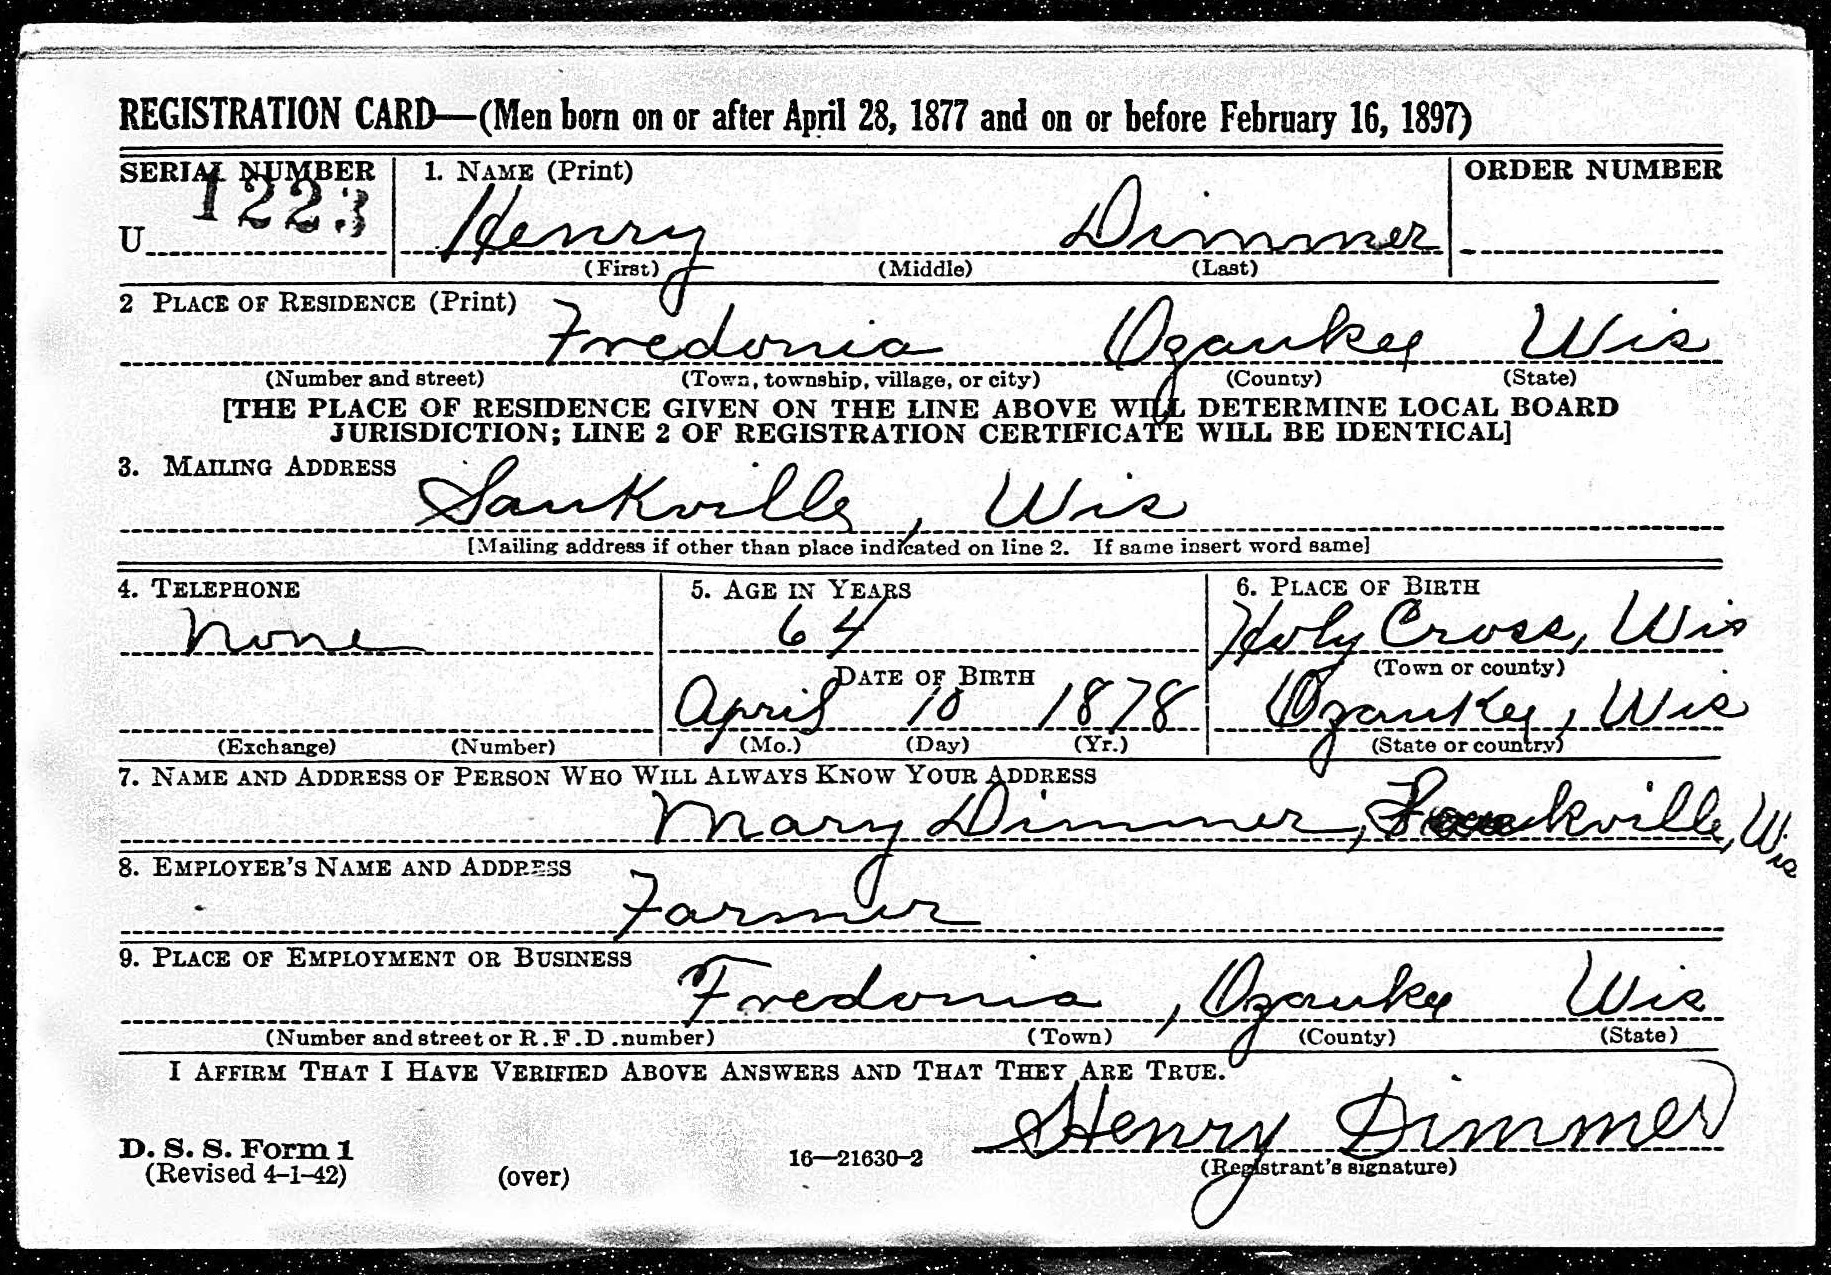 REGISTRATION CARD—(Men born on or after April 28, 1877 and on or before February 16, 1897)
SERIAL NUMBER 1. NAME (Print) ORDER NUMBER
U 1223 Henry Dimmer
(First) (Middle) (Last)
2 PLACE OF RESIDENCE (Print)
Fredonia Ozaukee Wis
(Number and street) (Town, township, village, or city) (County) (State)
[THE PLACE OF RESIDENCE GIVEN ON THE LINE ABOVE WILL DETERMINE LOCAL BOARD
JURISDICTION; LINE 2 OF REGISTRATION CERTIFICATE WILL BE IDENTICAL]
3. MAILING ADDRESS
Saukville, Wis
[Mailing address if other than place indicated on line 2. If same insert word same]
4. TELEPHONE 5. AGE IN YEARS 6. PLACE OF BIRTH
None 64 Holy Cross, Wis
DATE OF BIRTH (Town or county)
April 10 1878 Ozaukee, Wis
(Exchange) (Number) (Mo.) (Day) (Yr.) (State or country)
7. NAME AND ADDRESS OF PERSON WHO WILL ALWAYS KNOW YOUR ADDRESS
Mary Dimmer, Saukville, Wis
8. EMPLOYER'S NAME AND ADDRESS
Farmer
9. PLACE OF EMPLOYMENT OR BUSINESS
Fredonia, Ozaukee Wis
(Number and street or R.F.D. number) (Town) (County) (State)
I AFFIRM THAT I HAVE VERIFIED ABOVE ANSWERS AND THAT THEY ARE TRUE.
Henry Dimmer
D. S. S. Form 1
(Revised 4-1-42) (over) 16—21630-2 (Registrant's signature)